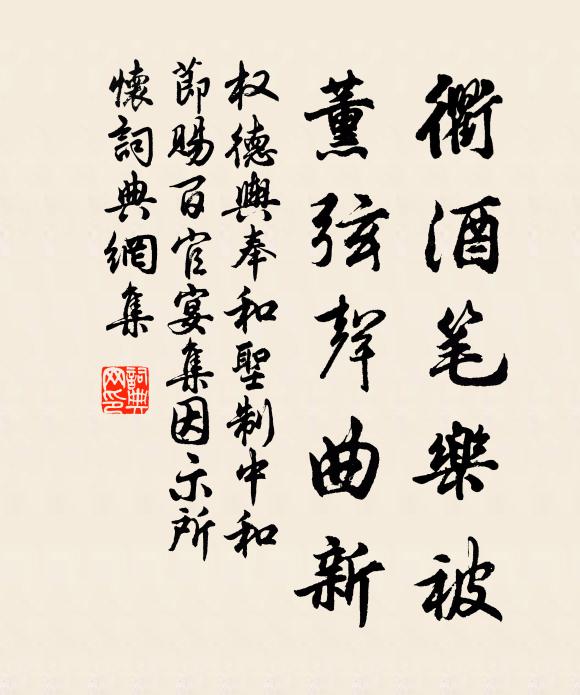 衢酒笔樂被
薰弦聲曲新
权德輿奉和聖制中和
節賜百官宴集因示所
懷詞典網集
詞典网印